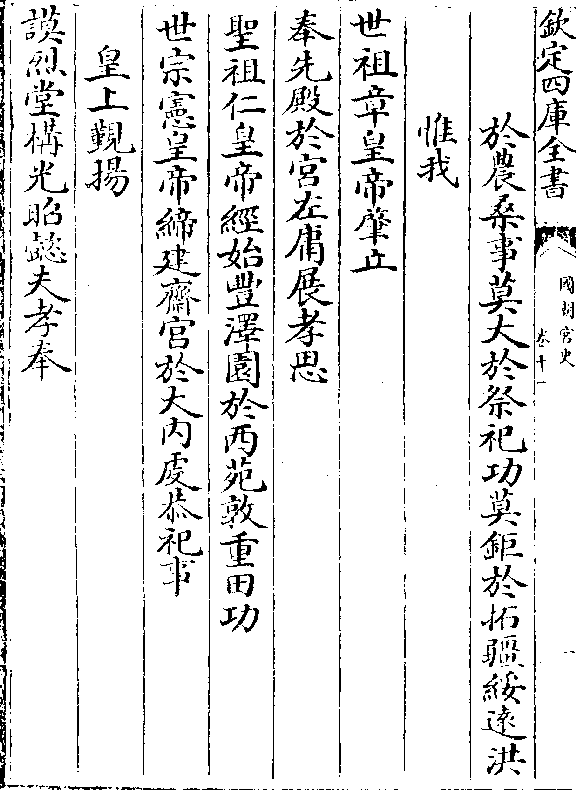 欽定四庫全書
國朝宮史
卷十一
於農桑事莫大於祭祀功莫鉅於拓疆綏遠洪
惟我
世祖章皇帝肇立
奉先殿於宮左庸展孝思
聖祖仁皇帝經始豐澤園於西苑敦重田功
世宗憲皇帝締建齋宮於大内虔恭祀事
皇上覲揚
謨烈堂構光昭懿夫孝奉